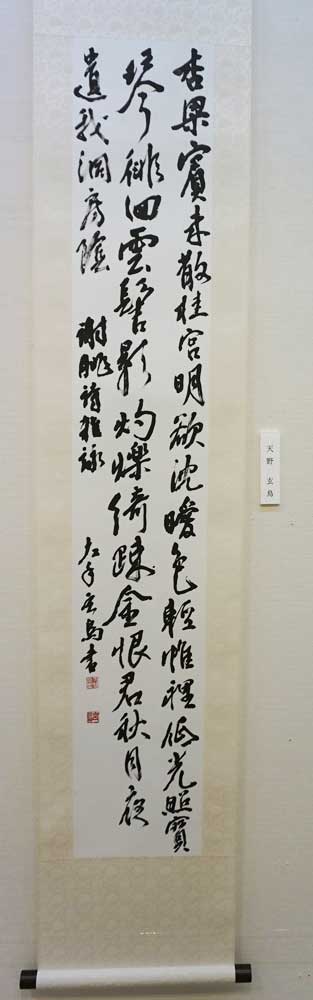 杏梁賓未散桂宮明欲沈曖色輕帷裡低光照寶
琴徘佪雲髻影灼爍綺疎金恨君秋月夜
遺我洞房陰 謝朓詩雜詠 左手玄鳥書
天野 玄鳥